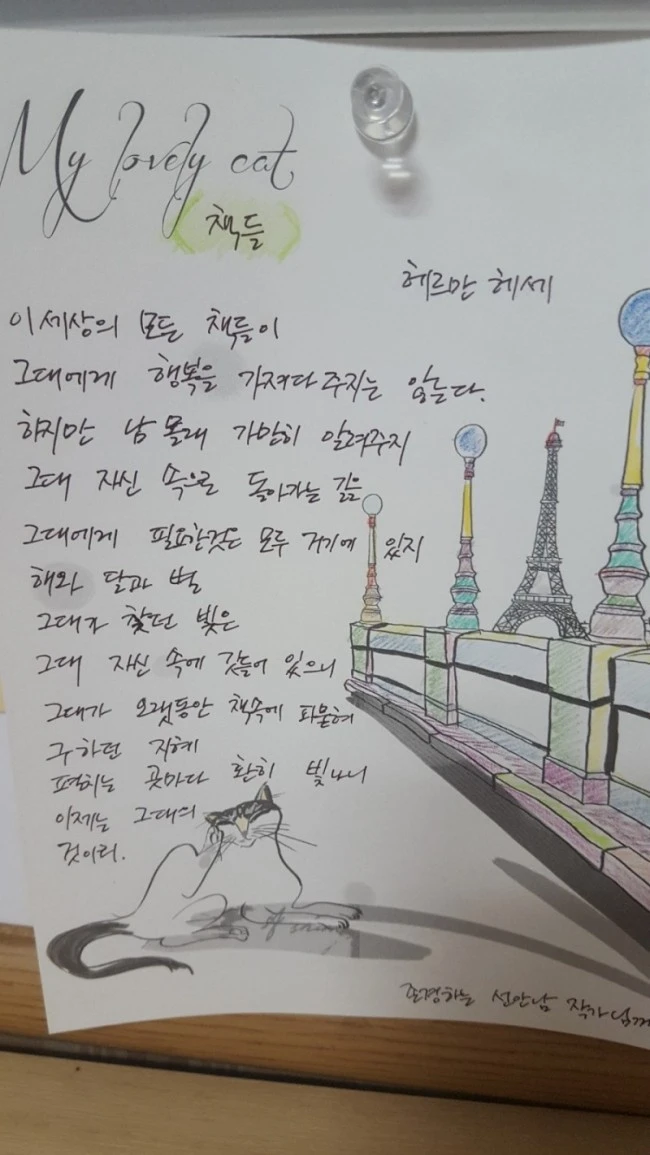 My lovely cat
책들
헤르만 헤세
이 세상의 모든 책들이
그대에게 행복을 가져다 주지는 않는다.
하지만 남 몰래 가만히 알려주지
그대 자신 속으로 돌아가는 길을
그대에게 필요한것은 모두 거기에 있지
해와 달과 별
그대가 찾던 빛은
그대 자신 속에 깃들어 있으니
그대가 오랫동안 책속에 파묻혀
구하던 지혜
펼치는 곳마다 환히 빛나니
이제는 그대의
것이리.
존경하는 선안남 작가님께